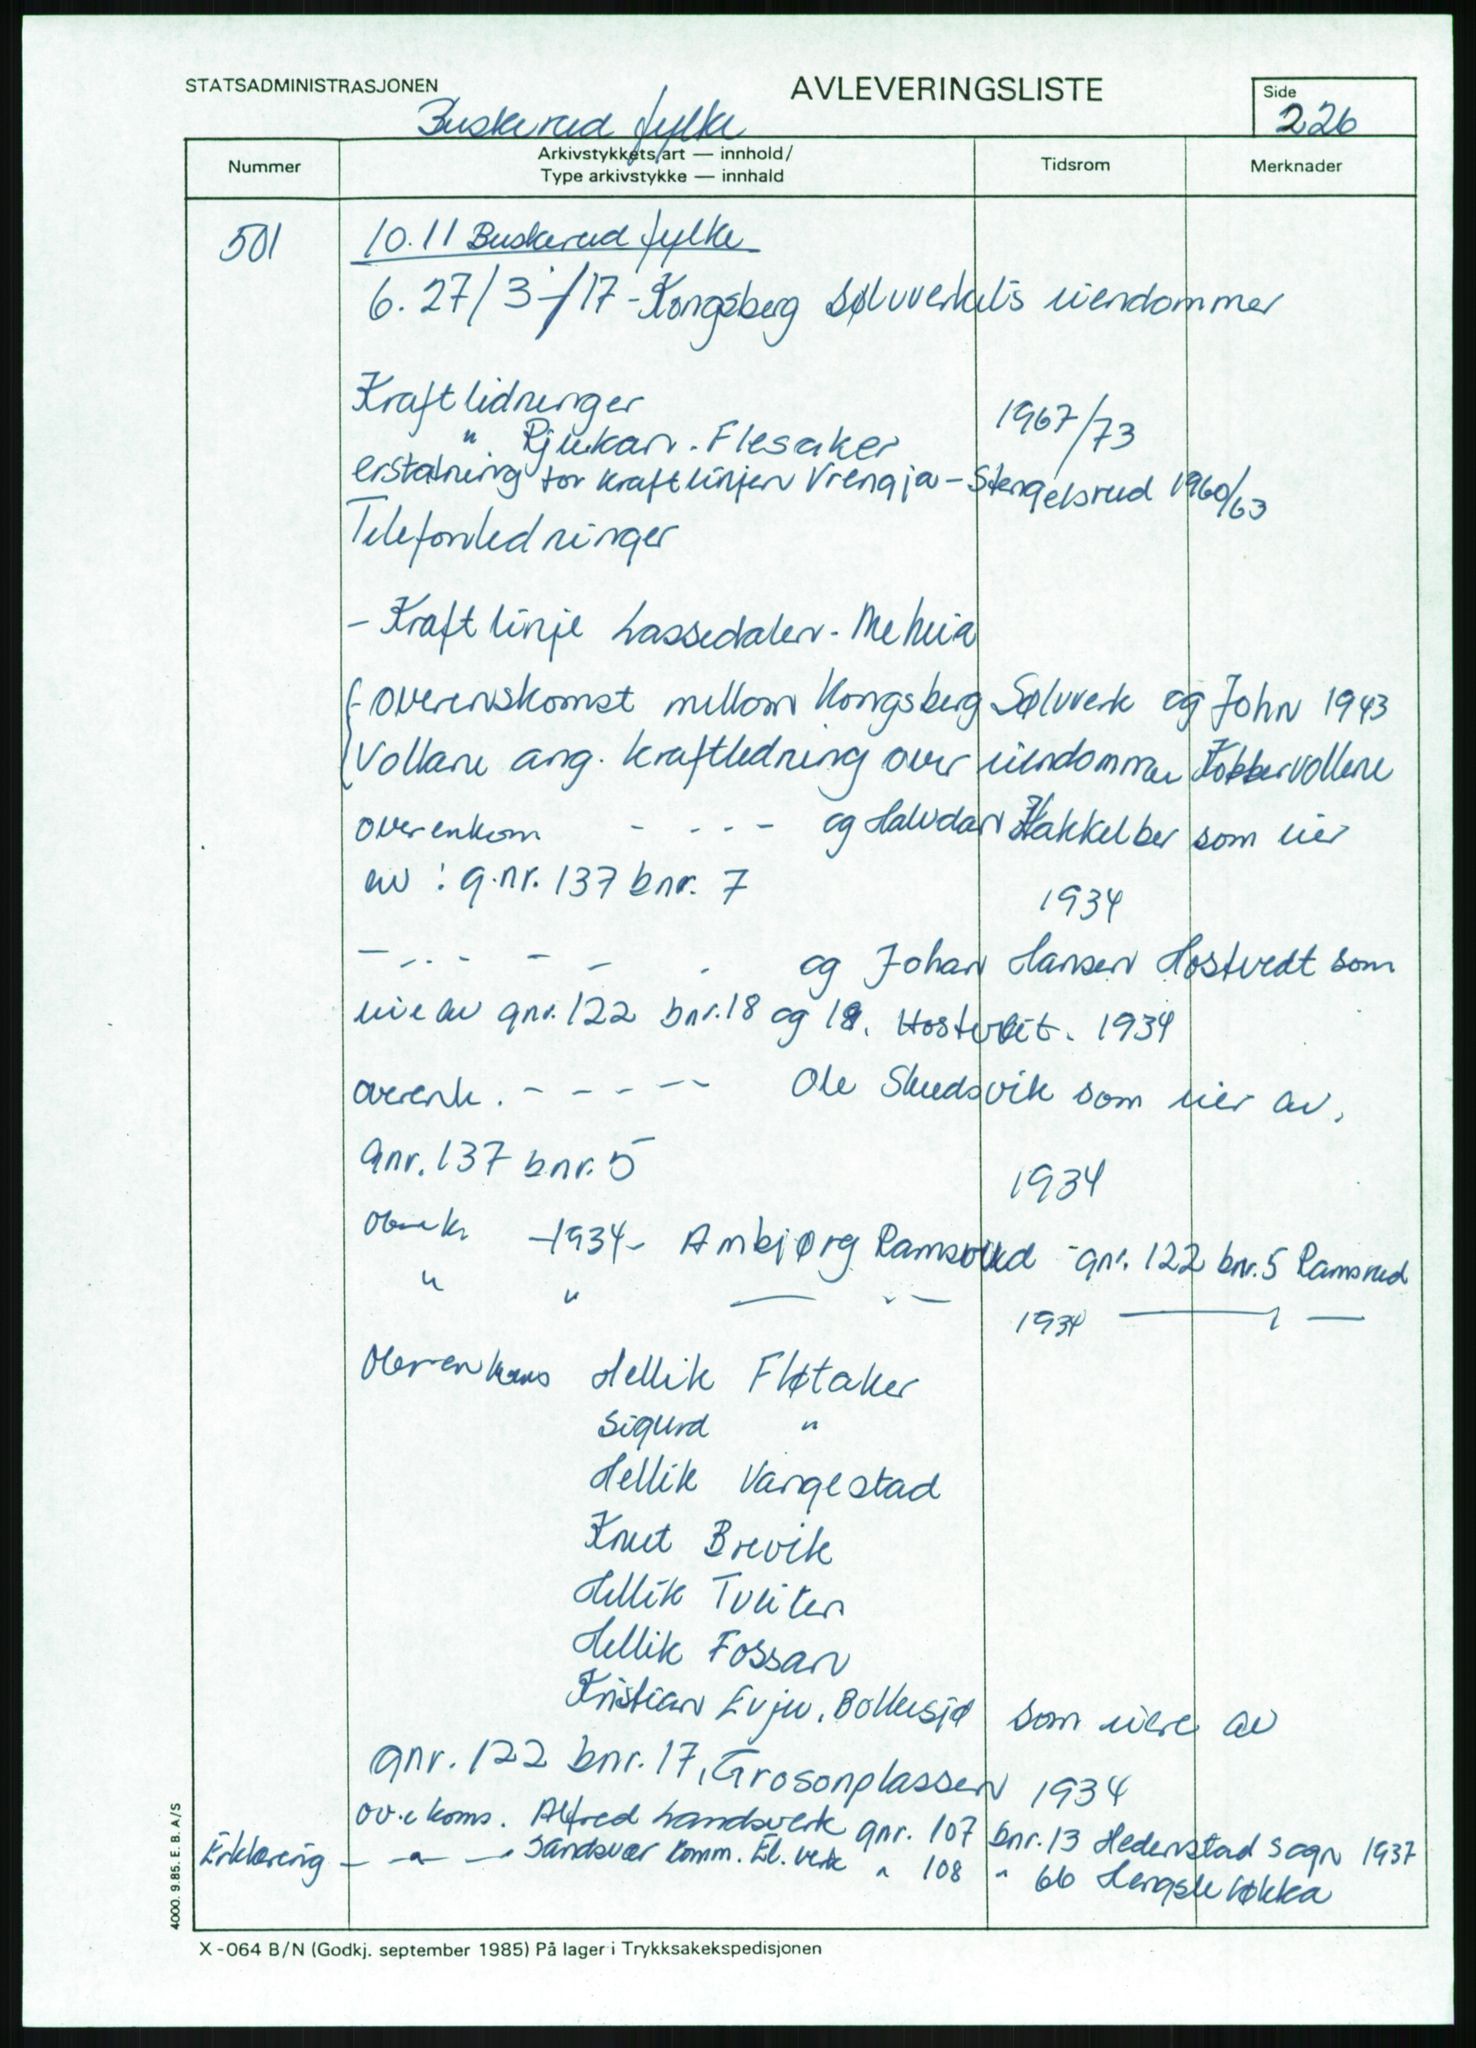 STATSADMINISTRASJONEN
AVLEVERINGSLISTE
Side
226
Buskerud fylke
Nummer
Arkivstykkets art — innhold/
Type arkivstykke — innhald
Tidsrom
Merknader
501
10.11 Buskerud fylke
6. 27/3-/17 - Kongsberg Sølvverkets eiendommer
Kraftledninger
" Rjukan - Flesaker 1967/73
erstatning for kraftlinjen Vrengja - Stengelsrud 1960/63
Telefonledninger
- Kraftlinje Lassedalen - Meheia
- overenskomst mellom Kongsberg Sølvverk og John 1943
Vollane ang. kraftledning over eiendommen Kobbervollane
overenkom - - - - og Halvdan Hakkelber som eier
av : g.nr. 137 bnr. 7
1934
- - - - - - - og Johan Hansen Hostvedt som
eie av gnr. 122 bnr. 18 og 19. Hostvet. 1934
overenk. - - - - - Ole Skudsvik som eier av,
gnr. 137 bnr. 5
1934
-1934- Ambjørg Ramsrud - gnr. 122 bnr. 5 Ramsrud
" " — - — 1934 — —
Overenkoms Hellik Fløtaker
Sigurd "
Hellik Vangestad
Knut Brevik
Hellik Tveiten
Hellik Fossan
Kristian Evju, Bollesjø som eiere av
gnr. 122 bnr. 17, Grosonplassen 1934
ov.ekoms. Alfred Landsverk gnr. 107 bnr. 13 Hedenstad Sogn 1937
Erklæring - - - Sandsvær Komm. El. verk " 108 " 66 Hengsle løkka
4000. 9.85. E. B. A/S
X-064 B/N (Godkj. september 1985) På lager i Trykksakekspedisjonen